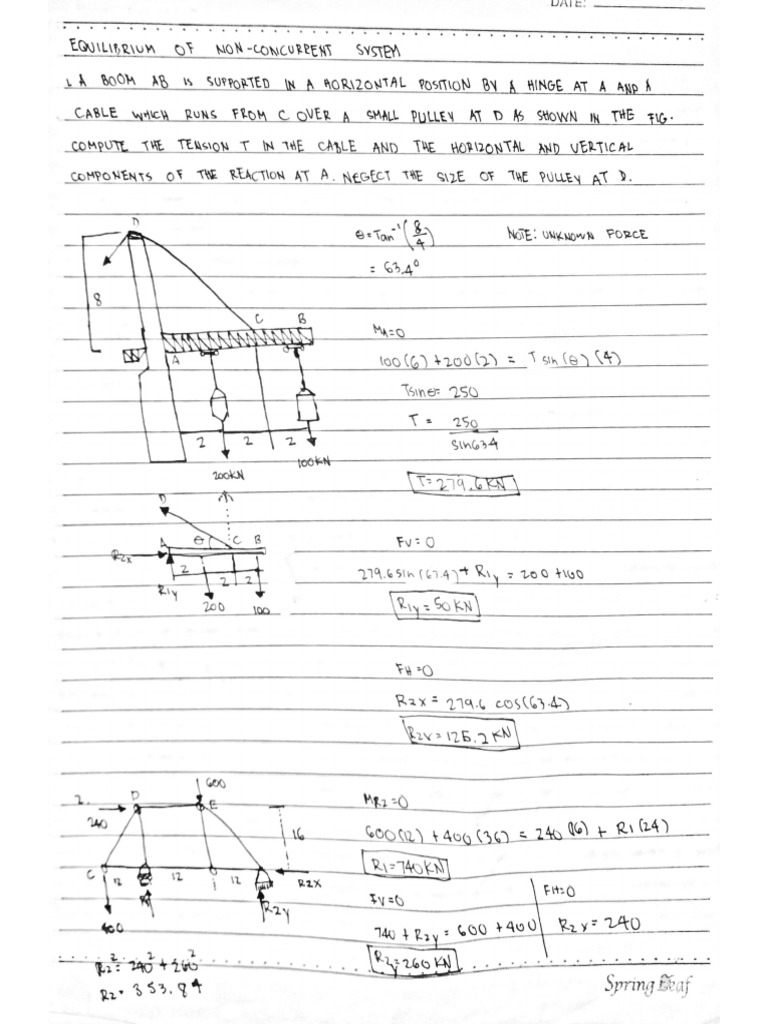 DATE:
EQUILIBRIUM OF NON-CONCURRENT SYSTEM
1. A BOOM AB IS SUPPORTED IN A HORIZONTAL POSITION BY A HINGE AT A AND A
CABLE WHICH RUNS FROM C OVER A SMALL PULLEY AT D AS SHOWN IN THE FIG.
COMPUTE THE TENSION T IN THE CABLE AND THE HORIZONTAL AND VERTICAL
COMPONENTS OF THE REACTION AT A. NEGECT THE SIZE OF THE PULLEY AT D.
D
8
C B
A
2 2 2
200KN
100KN
θ = Tan⁻¹(8/4)
= 63.4°
NOTE: UNKNOWN FORCE
MA=0
100(6) + 200(2) = T sin(θ)(4)
Tsinθ= 250
T = 250
sin63.4
T= 279.6 KN
D
A θ C B
R2x
2 2 2
R1y
200
100
FV = 0
279.6 sin(63.4) + R1y = 200 + 100
R1y = 50 KN
FH =0
R2x = 279.6 cos(63.4)
R2x = 125.2 KN
2.
600
D E
240
16
C 12 12 12
R2x
R1
R2y
400
R2² = 240² + 260²
R2 = 353.84
MR2 =0
600(12) + 400(36) = 240(16) + R1(24)
R1= 740 KN
FV=0
740 + R2y = 600 + 400
R2y = 260 KN
FH=0
R2x = 240
Spring Leaf